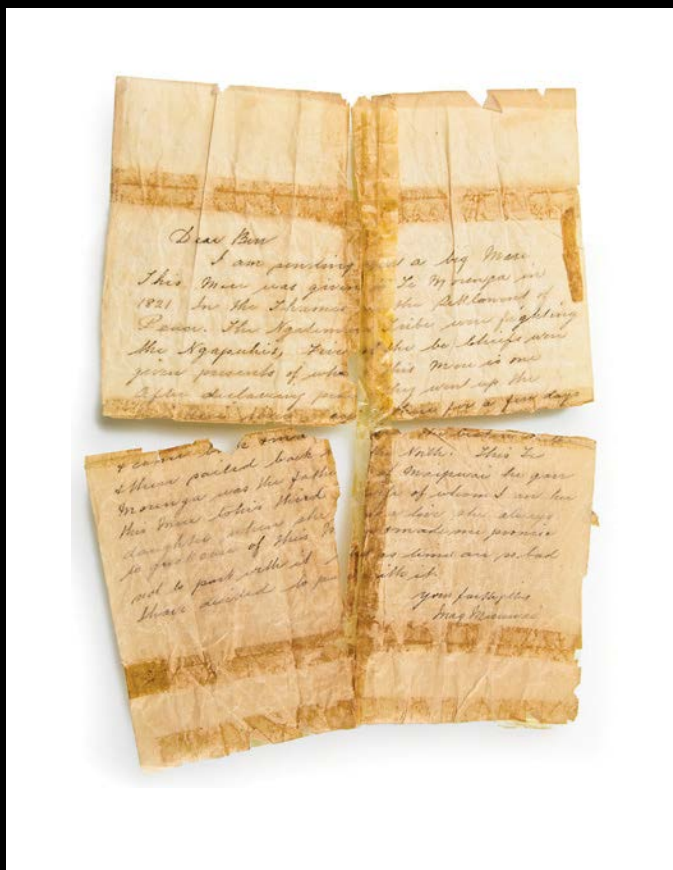 Dear Ben
I am sending you a big Mere
This Mere was given to Te Morenga in
1821 In the Thames the Settlement of
Peace. The Ngatimaru Tribe were fighting
the Ngapuhis, Five of the be Chiefs were
given presents of whic this Mere is one
After declaring pea they went up the
there for a few days
& came back
& there sailed back the North. This Te
Morenga was the father of he gave
this Mere to his third of whom I am her
daughter when she live she always
to take care of this made me promise
not to part with it as time are so bad
I have decided to pa with it.
your faithfully